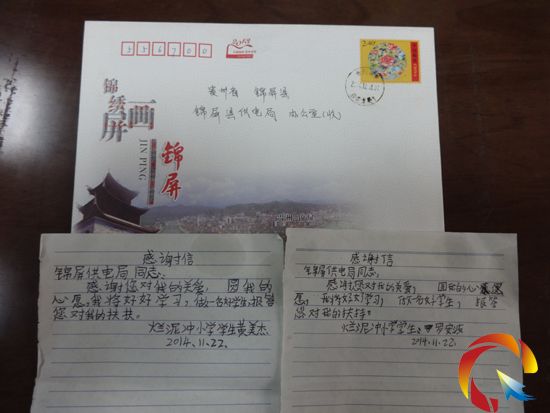 556700
2.40
贵州省 锦屏县
锦屏县供电局 办公室(收)
锦绣画屏
JIN PING
锦屏
感谢信
锦屏供电局同志:
感谢您对我的关爱, 圆我的
心愿,我将好好学习,做一名好学生,报答
您对我的扶扶.
烂泥冲小学学生黄美杰
2014.11.22.
感谢信
锦屏供电局同志:
感谢您对我的关爱, 圆我的心
愿, 我将好好学习, 做一名好学生, 报答
您对我的扶持.
烂泥冲小学学生:罗安
2014.11.22.